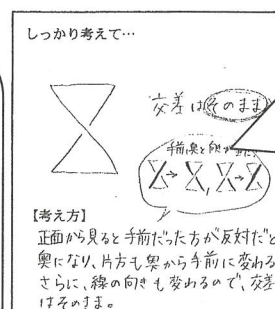 しっかり考えて…
交差はそのまま
手前、奥と向きが
【考え方】
正面から見ると手前だった方が反対だと
奥になり、片方も奥から手前に変わる
さらに、線の向きも変わるので、交差
はそのまま。